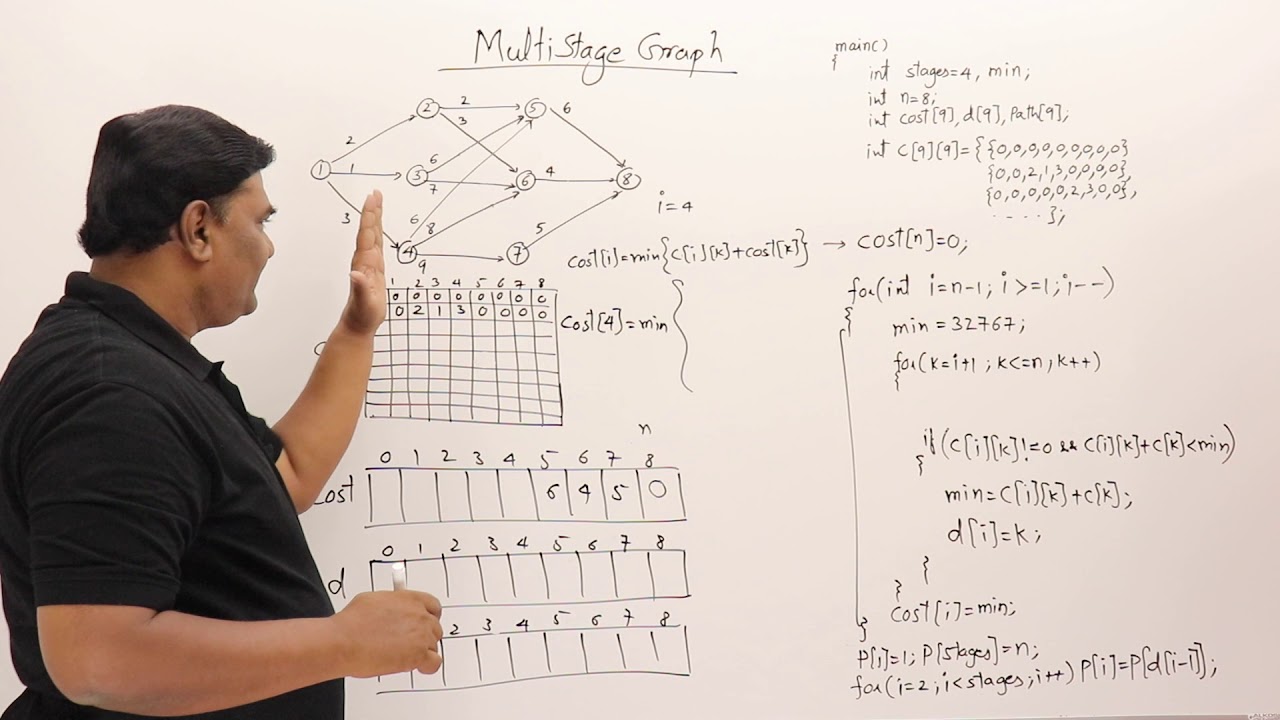 MultiStage Graph
2 2 5 6
3
2
1 1 3 6 6 4 8
7
3 6 8 5
4 7
9
i=4
cost[i]=min{C[i][k]+cost[k]} → cost[n]=0;
1 2 3 4 5 6 7 8
0 0 0 0 0 0 0 0
0 2 1 3 0 0 0 0
Cost[4]=min {
n
0 1 2 3 4 5 6 7 8
Cost 6 4 5 0
0 1 2 3 4 5 6 7 8
d
2 3 4 5 6 7 8
main()
{
int stages=4, min;
int n=8;
int cost[9], d[9], Path[9];
int C[9][9]={{0,0,0,0,0,0,0,0,0}
{0,0,2,1,3,0,0,0,0},
{0,0,0,0,0,2,3,0,0},
- - - - };
for(int i=n-1; i>=1; i--)
{
min=32767;
for(k=i+1; k<=n; k++)
{
if(C[i][k]!=0 && C[i][k]+C[k]<min)
{
min=C[i][k]+C[k];
d[i]=k;
}
}
Cost[i]=min;
}
P[1]=1; P[stages]=n;
for(i=2; i<stages; i++) P[i]=P[d[i-1]];